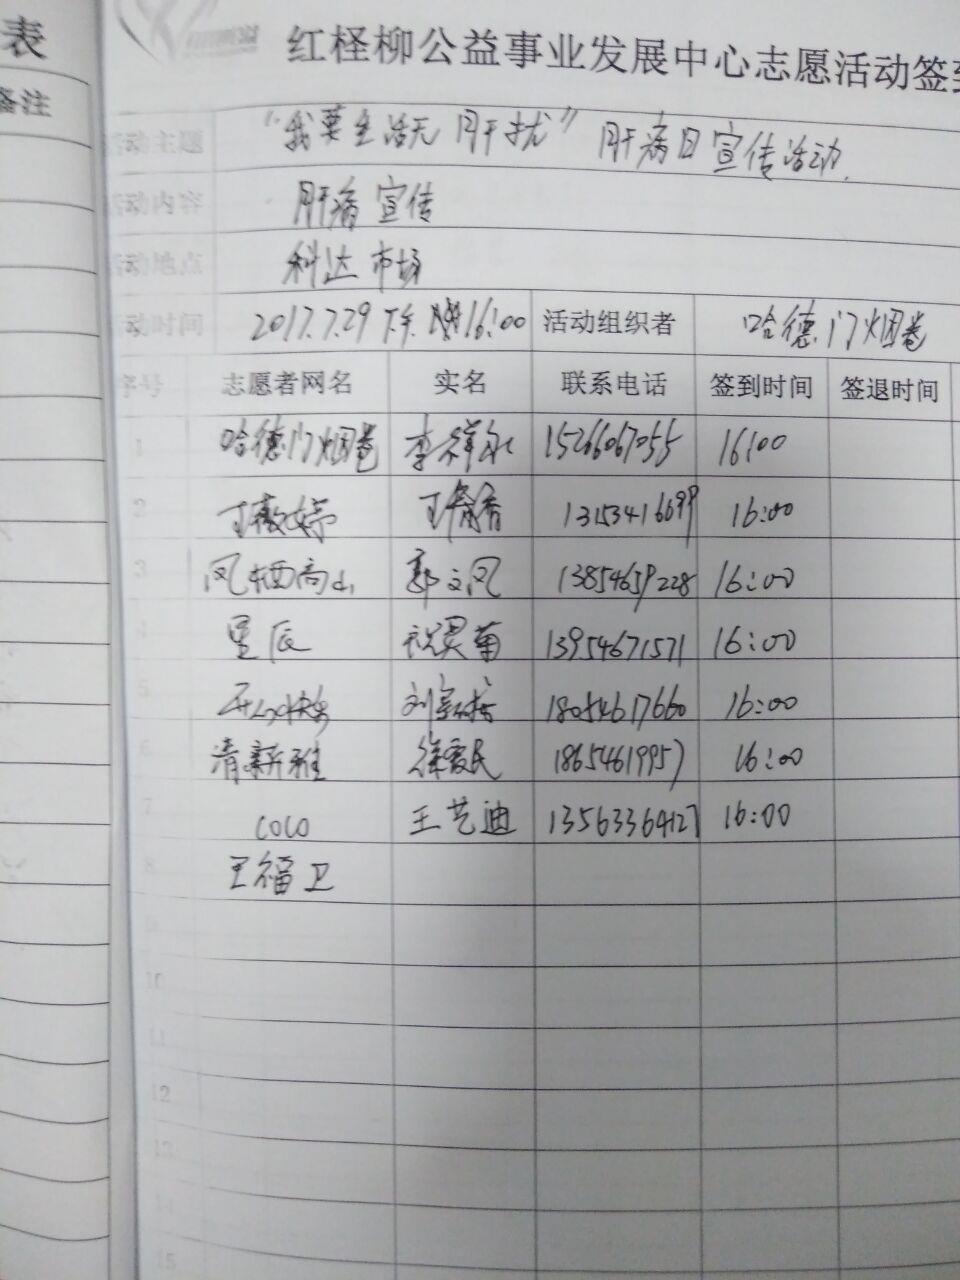 表
备注
红柽柳公益事业发展中心志愿活动签到
活动主题 "我要生活无肝扰" 肝病日宣传活动.
活动内容 肝病宣传
活动地点 科达市场
活动时间 2017.7.29 下午 16:00 活动组织者 哈德门烟卷
序号 志愿者网名 实名 联系电话 签到时间 签退时间
1 哈德门烟卷 李祥永 15266067055 16:00
2 丁薇婷 13153416699 16:00
3 凤栖高山 郭文凤 13854659228 16:00
4 星辰 祝贝菊 13954671571 16:00
5 开心快乐 18054617660 16:00
6 清新雅 徐爱民 18654619957 16:00
7 COCO 王艺迪 13563364127 16:00
8 王福卫
9
10
11
12
13
14
15